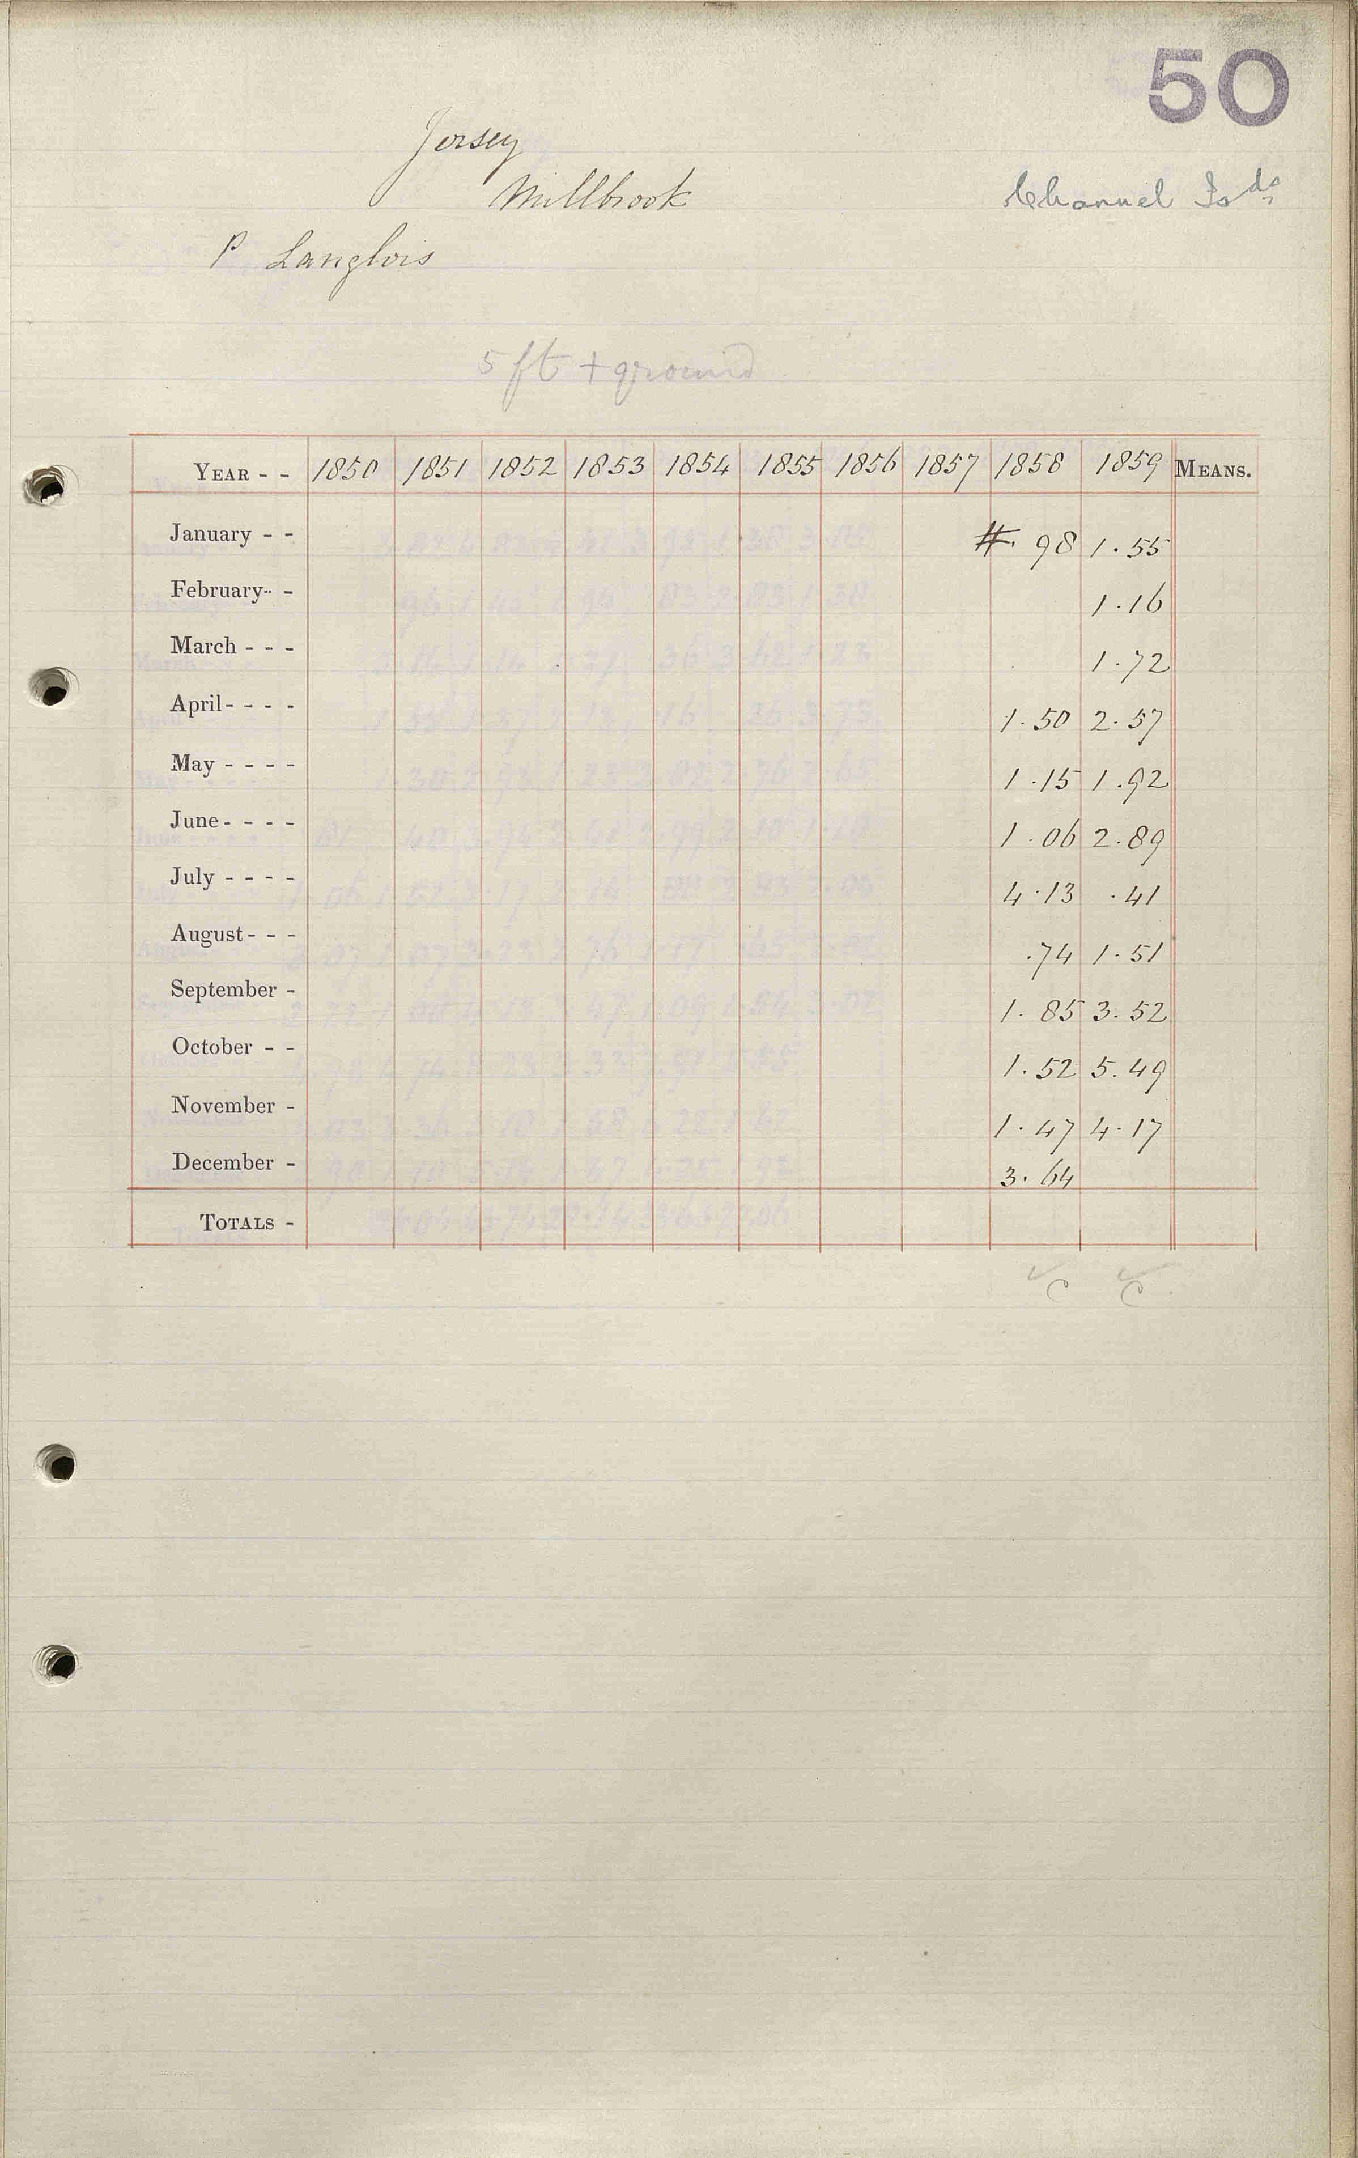 50
Jersey
Millbrook
Channel Isds
P Langlois
5 ft + ground
YEAR - - 1850 1851 1852 1853 1854 1855 1856 1857 1858 1859 MEANS.
January - - .98 1.55
February - - 1.16
March - - - 1.72
April - - - - 1.50 2.57
May - - - - 1.15 1.92
June - - - - 1.06 2.89
July - - - - 4.13 .41
August - - - .74 1.51
September - 1.85 3.52
October - - 1.52 5.49
November - 1.47 4.17
December - 3.64
TOTALS -
C C